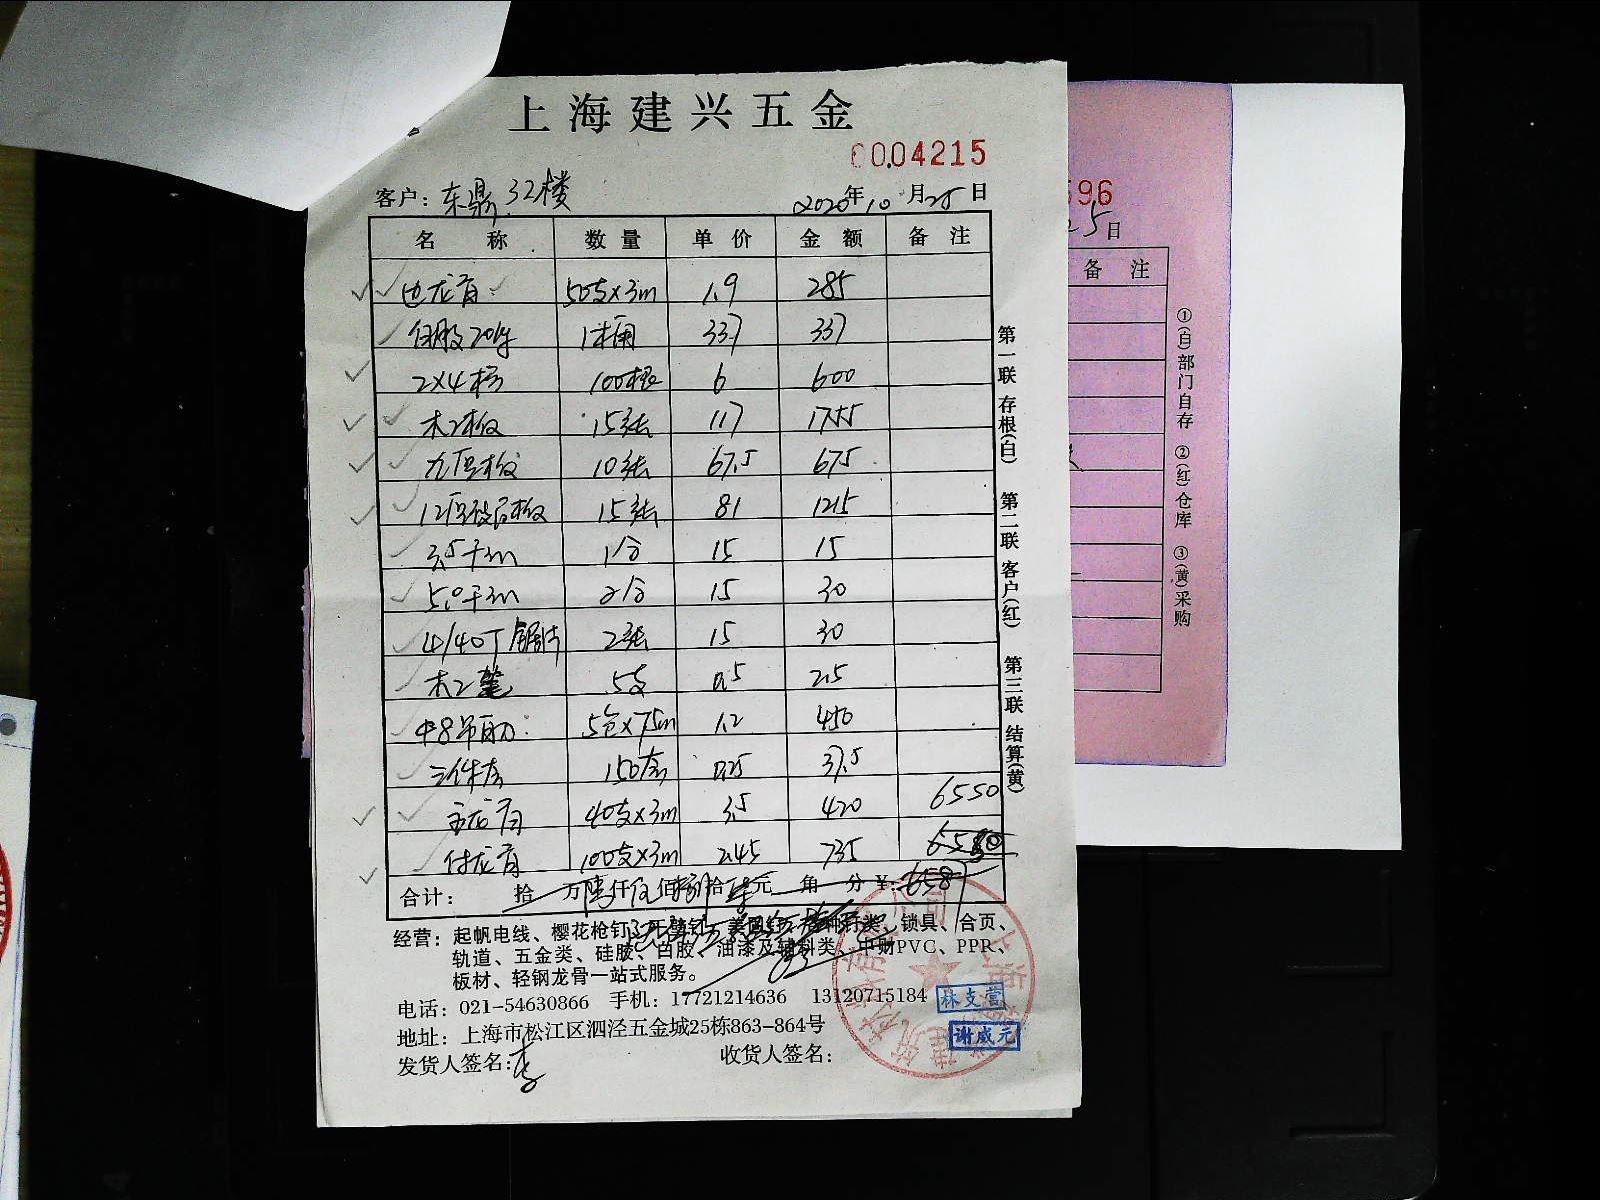 上海建兴五金
0004215
客户：东鼎 32楼 2020年10月25日
名称 数量 单价 金额 备注
边龙骨 50支×3m 1.9 285
白胶20kg 1桶 337 337
2×4木方 100根 6 600
木工板 15张 117 1755
九厘板 10张 67.5 675
12厘玻石板 15张 81 1215
3.5干m 1合 15 15
5.0干m 2合 15 30
4/40T锯片 2张 15 30
木工笔 5支 0.5 2.5
φ8吊筋 5包×75m 1.2 450
三件套 150套 0.25 37.5
主龙骨 40支×3m 3.5 420 6550
付龙骨 100支×3m 2.45 735
合计： 拾 万陆仟伍佰捌拾柒元 角 分 ¥：6587
经营：起帆电线、樱花枪钉、美固钉、各种钉类、锁具、合页、
轨道、五金类、硅胶、白胶、油漆及辅料类、中财PVC、PPR、
板材、轻钢龙骨一站式服务。
电话：021-54630866 手机：17721214636 13120715184
地址：上海市松江区泗泾五金城25栋863-864号
发货人签名：李 收货人签名：
林支营
谢威元
第一联 存根(白) 第二联 客户(红) 第三联 结算(黄)
596
25日
备注
①(白)部门自存 ②(红)仓库 ③(黄)采购